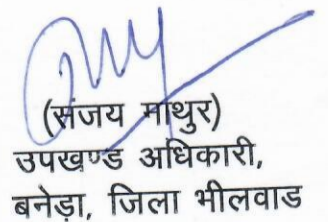 (संजय माथुर)
उपखण्ड अधिकारी,
बनेड़ा, जिला भीलवाड